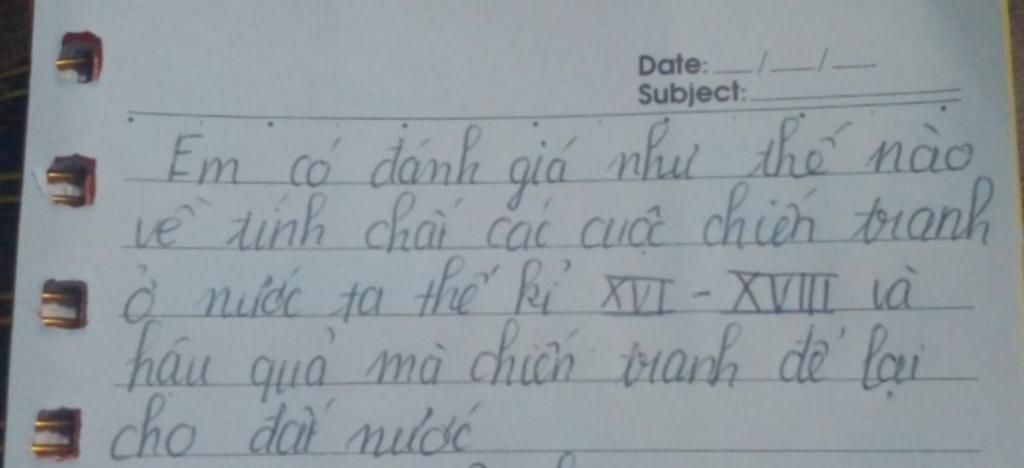 Date: __/__/__
Subject:
Em có đánh giá như thế nào
về tính chất các cuộc chiến tranh
ở nước ta thế kỉ XVI - XVIII và
hậu quả mà chiến tranh để lại
cho đất nước